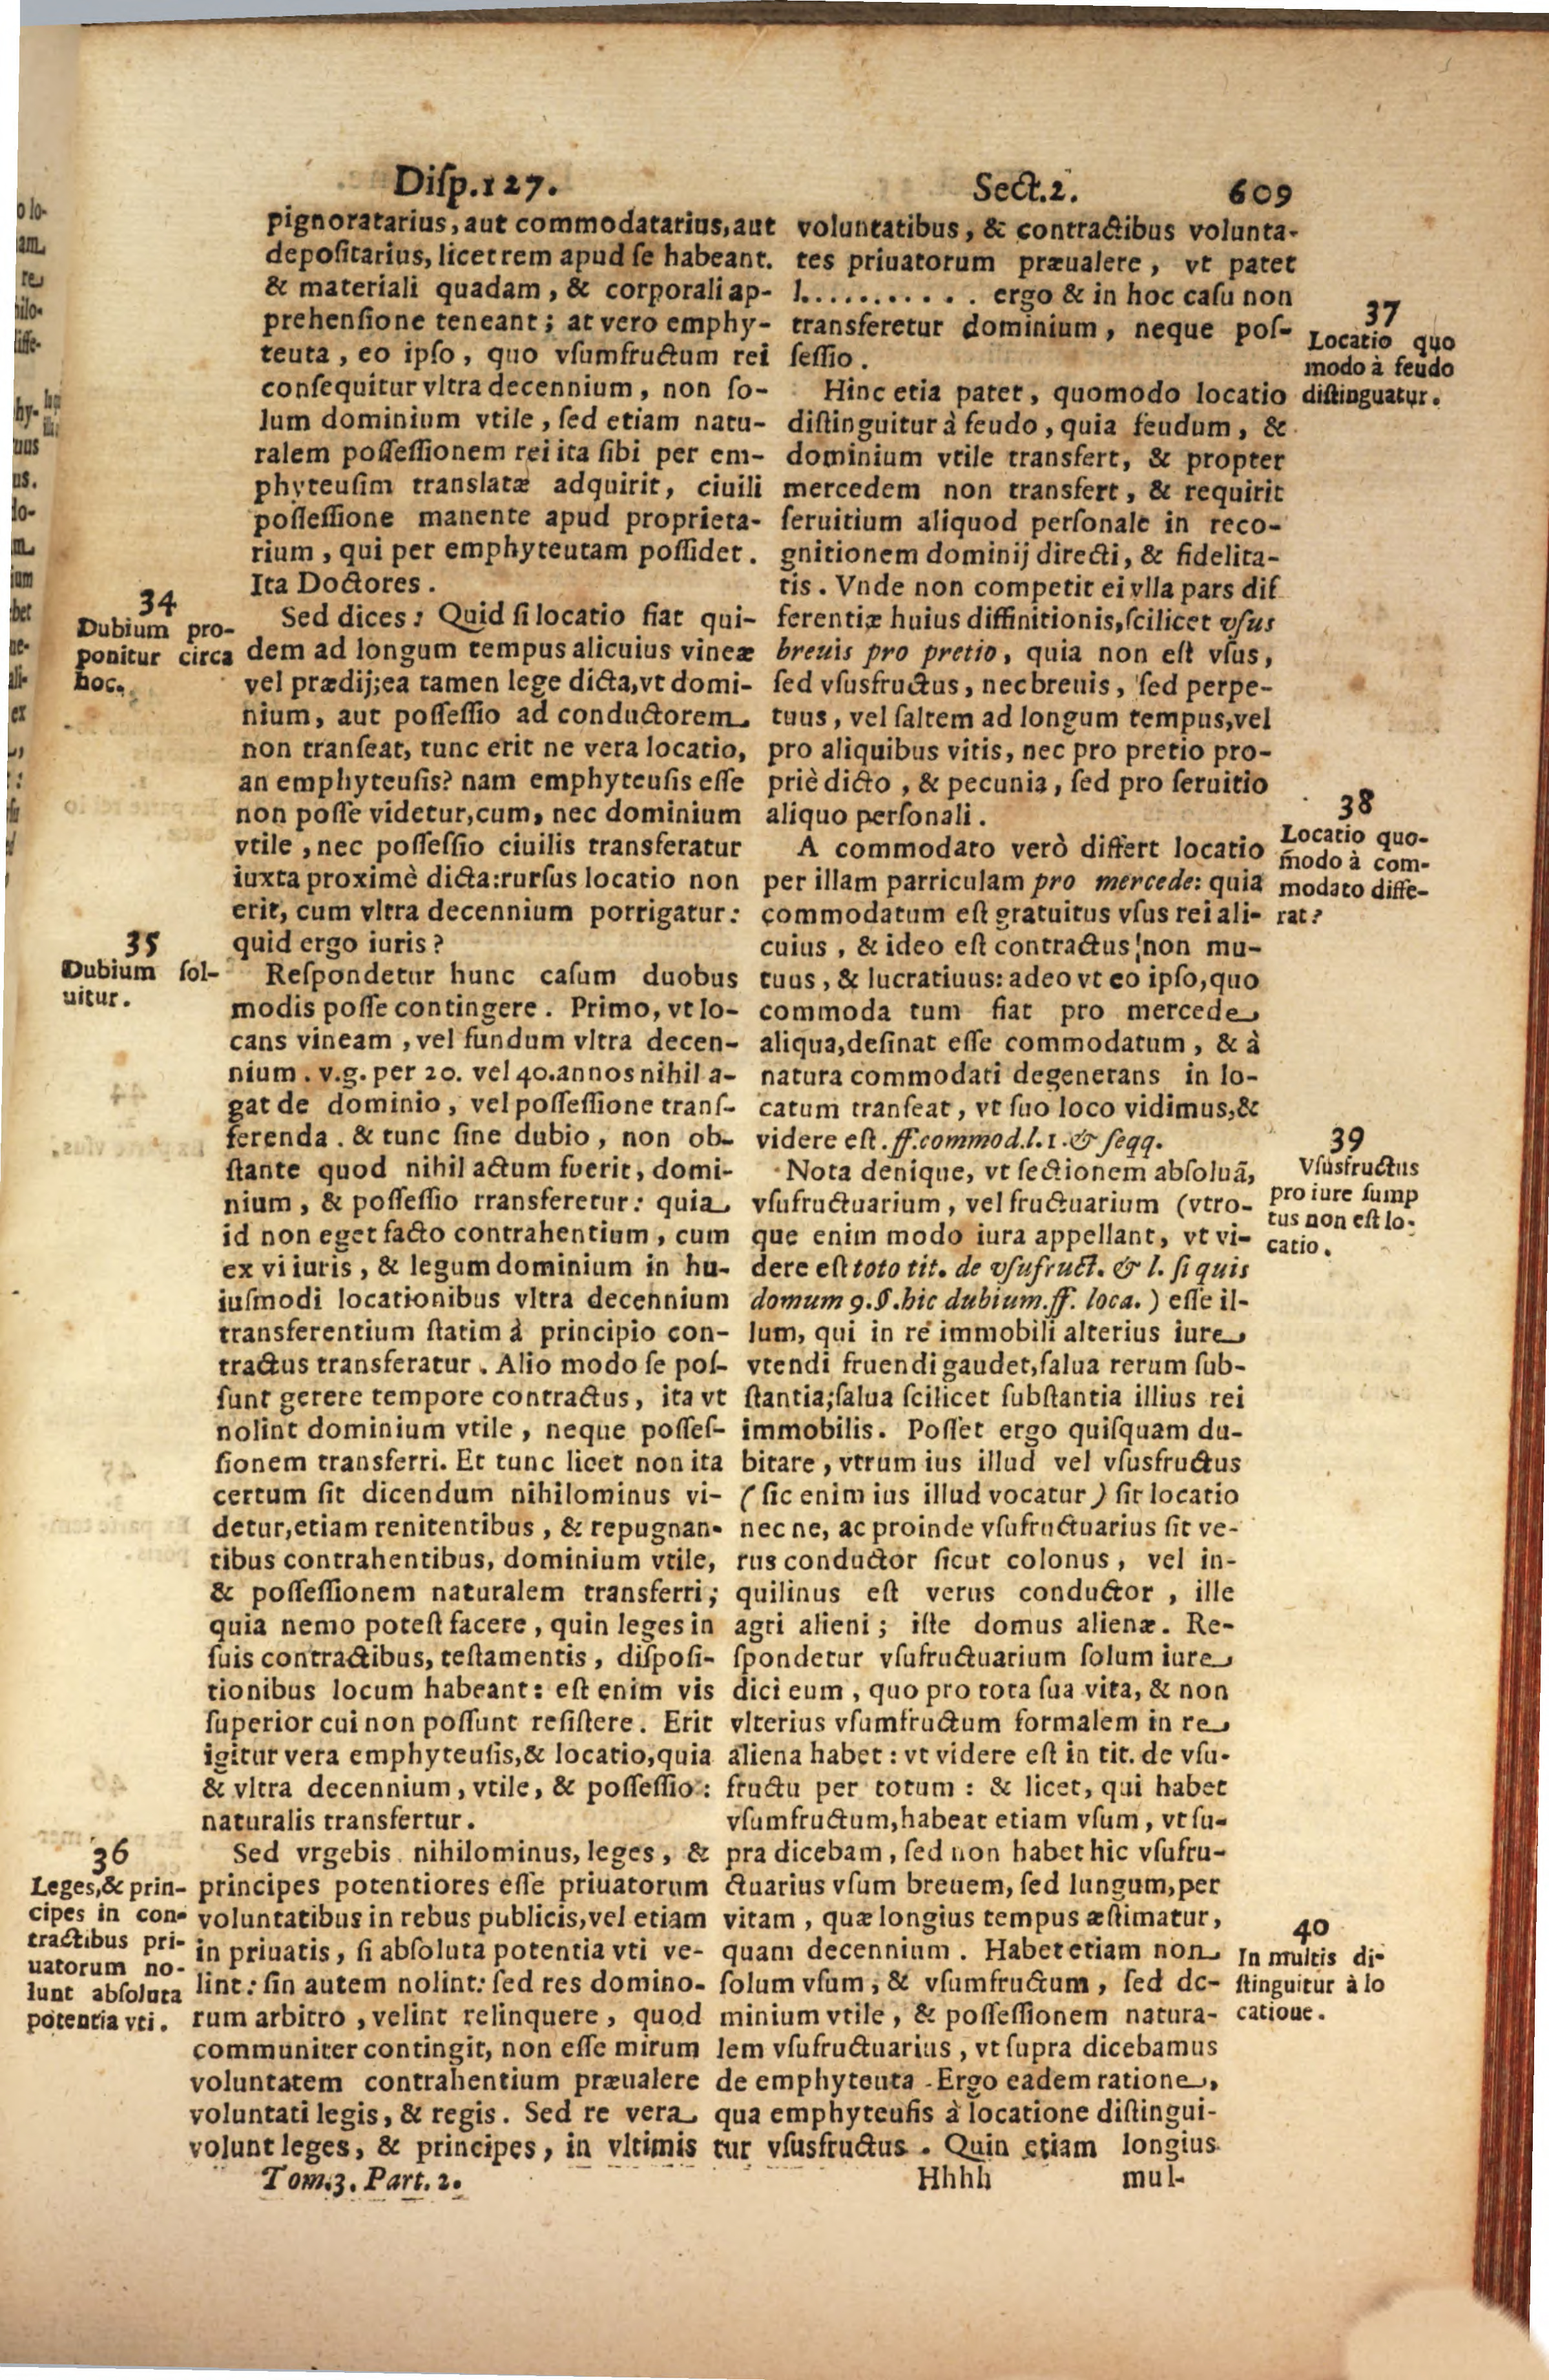 Diſp.127.
Sect.2.
609
pignoratarius, aut commodatarius, aut
depoſitarius, licet rem apud ſe habeant.
& materiali quadam, & corporali ap-
prehenſione teneant; at vero emphy-
teuta, eo ipſo, quo vſumfructum rei
conſequitur vltra decennium, non ſo-
lum dominium vtile, ſed etiam natu-
ralem poſſeſſionem rei ita ſibi per em-
phyteuſim translatæ adquirit, ciuili
poſſeſſione manente apud proprieta-
rium, qui per emphyteutam poſſidet.
Ita Doctores.
34
Dubium pro-
ponitur circa
hoc.
Sed dices: Quid ſi locatio fiat qui-
dem ad longum tempus alicuius vineæ
vel prædij; ea tamen lege dicta, vt domi-
nium, aut poſſeſſio ad conductorem
non tranſeat, tunc erit ne vera locatio,
an emphyteuſis? nam emphyteuſis eſſe
non poſſe videtur, cum, nec dominium
vtile, nec poſſeſſio ciuilis transferatur
iuxta proximè dicta: rurſus locatio non
erit, cum vltra decennium porrigatur:
quid ergo iuris?
35
Dubium ſol-
uitur.
Reſpondetur hunc caſum duobus
modis poſſe contingere. Primo, vt lo-
cans vineam, vel fundum vltra decen-
nium. v.g. per 20. vel 40. annos nihil a-
gat de dominio, vel poſſeſſione tranſ-
ferenda. & tunc ſine dubio, non ob-
ſtante quod nihil actum fuerit, domi-
nium, & poſſeſſio rransferetur: quia
id non eget facto contrahentium, cum
ex vi iuris, & legum dominium in hu-
iuſmodi locationibus vltra decennium
transferentium ſtatim à principio con-
tractus transferatur. Alio modo ſe poſ-
ſunt gerere tempore contractus, ita vt
nolint dominium vtile, neque poſſeſ-
ſionem transferri. Et tunc licet non ita
certum ſit dicendum nihilominus vi-
detur, etiam renitentibus, & repugnan-
tibus contrahentibus, dominium vtile,
& poſſeſſionem naturalem transferri;
quia nemo poteſt facere, quin leges in
ſuis contractibus, teſtamentis, diſpoſi-
tionibus locum habeant: eſt enim vis
ſuperior cui non poſſunt reſiſtere. Erit
igitur vera emphyteuſis, & locatio, quia
& vltra decennium, vtile, & poſſeſſio:
naturalis transfertur.
36
Leges, & prin-
cipes in con-
tractibus pri-
uatorum no-
lunt abſoluta
potentia vti.
Sed vrgebis nihilominus, leges, &
principes potentiores eſſe priuatorum
voluntatibus in rebus publicis, vel etiam
in priuatis, ſi abſoluta potentia vti ve-
lint: ſin autem nolint: ſed res domino-
rum arbitro, velint relinquere, quod
communiter contingit, non eſſe mirum
voluntatem contrahentium præualere
voluntati legis, & regis. Sed re vera
volunt leges, & principes, in vltimis
Tom.3. Part. 2.
voluntatibus, & contractibus volunta-
tes priuatorum præualere, vt patet
l........... ergo & in hoc caſu non
transferetur dominium, neque poſ-
ſeſſio.
37
Locatio quo
modo à feudo
diſtinguatur.
Hinc etia patet, quomodo locatio
diſtinguitur à feudo, quia feudum, &
dominium vtile transfert, & propter
mercedem non transfert, & requirit
ſeruitium aliquod perſonale in reco-
gnitionem dominij directi, & fidelita-
tis. Vnde non competit ei vlla pars dif
ferentiæ huius diffinitionis, ſcilicet vſus
breuis pro pretio, quia non eſt vſus,
ſed vſusfructus, nec breuis, ſed perpe-
tuus, vel ſaltem ad longum tempus, vel
pro aliquibus vitis, nec pro pretio pro-
priè dicto, & pecunia, ſed pro ſeruitio
aliquo perſonali.
38
Locatio quo-
modo à com-
modato diffe-
rat?
A commodato verò differt locatio
per illam parriculam pro mercede: quia
commodatum eſt gratuitus vſus rei ali-
cuius, & ideo eſt contractus non mu-
tuus, & lucratiuus: adeo vt eo ipſo, quo
commoda tum fiat pro mercede
aliqua, deſinat eſſe commodatum, & à
natura commodati degenerans in lo-
catum tranſeat, vt ſuo loco vidimus, &
videre eſt. ff. commod. l. 1. & ſeqq.
39
Vſusfructus
pro iure ſump
tus non eſt lo-
catio.
Nota denique, vt ſectionem abſoluā,
vſufructuarium, vel fructuarium (vtro-
que enim modo iura appellant, vt vi-
dere eſt toto tit. de vſufruct. & l. ſi quis
domum 9. §. hic dubium. ff. loca.) eſſe il-
lum, qui in re immobili alterius iure
vtendi fruendi gaudet, ſalua rerum ſub-
ſtantia; ſalua ſcilicet ſubſtantia illius rei
immobilis. Poſſet ergo quiſquam du-
bitare, vtrum ius illud vel vſusfructus
(ſic enim ius illud vocatur) ſit locatio
nec ne, ac proinde vſufructuarius ſit ve-
rus conductor ſicut colonus, vel in-
quilinus eſt verus conductor, ille
agri alieni; iſte domus alienæ. Re-
ſpondetur vſufructuarium ſolum iure
dici eum, quo pro tota ſua vita, & non
vlterius vſumfructum formalem in re
aliena habet: vt videre eſt in tit. de vſu-
fructu per totum: & licet, qui habet
vſumfructum, habeat etiam vſum, vt ſu-
pra dicebam, ſed non habet hic vſufru-
ctuarius vſum breuem, ſed lungum, per
vitam, quæ longius tempus æſtimatur,
quam decennium. Habet etiam non
ſolum vſum, & vſumfructum, ſed do-
minium vtile, & poſſeſſionem natura-
lem vſufructuarius, vt ſupra dicebamus
de emphyteuta. Ergo eadem ratione,
qua emphyteuſis à locatione diſtingui-
tur vſusfructus. Quin etiam longius
40
In multis di-
ſtinguitur à lo
catioue.
Hhhh
mul-